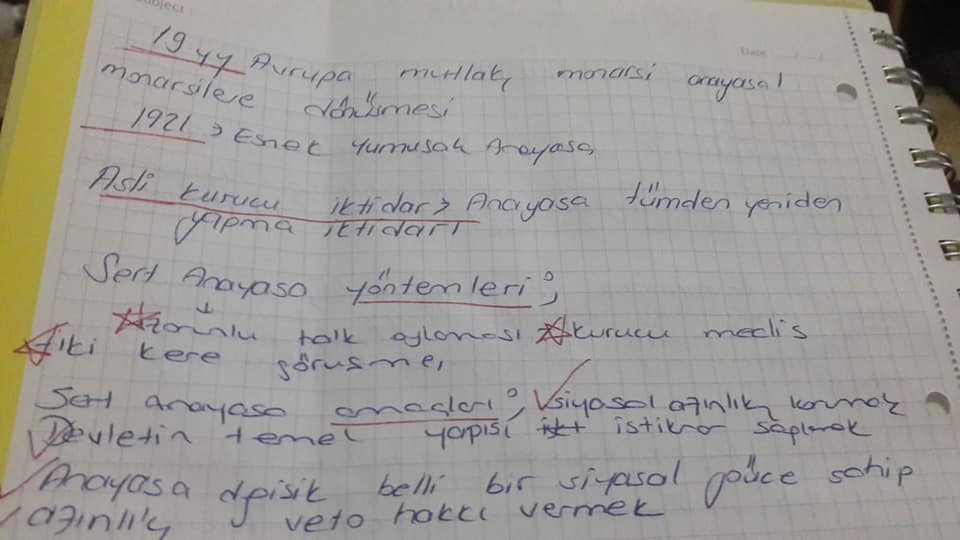 Subject
Date
19 yy Avrupa mutlak monarsi anayasal
monarsilere dönüsmesi
1921 > Esnek Yumusak Anayasa
Asli kurucu iktidar > Anayasa tümden yeniden
yapma iktidarı
Sert Anayasa yöntemleri;
↓
☆ zorunlu halk oylaması ☆ kurucu meclis
☆ iki kere görüsme,
Sert anayasa amaçları; ✓ siyasal azınlık korumak
✓ Devletin temel yapısı istikrar saglamak
✓ Anayasa dgisik belli bir siyasal güce sahip
✓ azınlık veto hakkı vermek